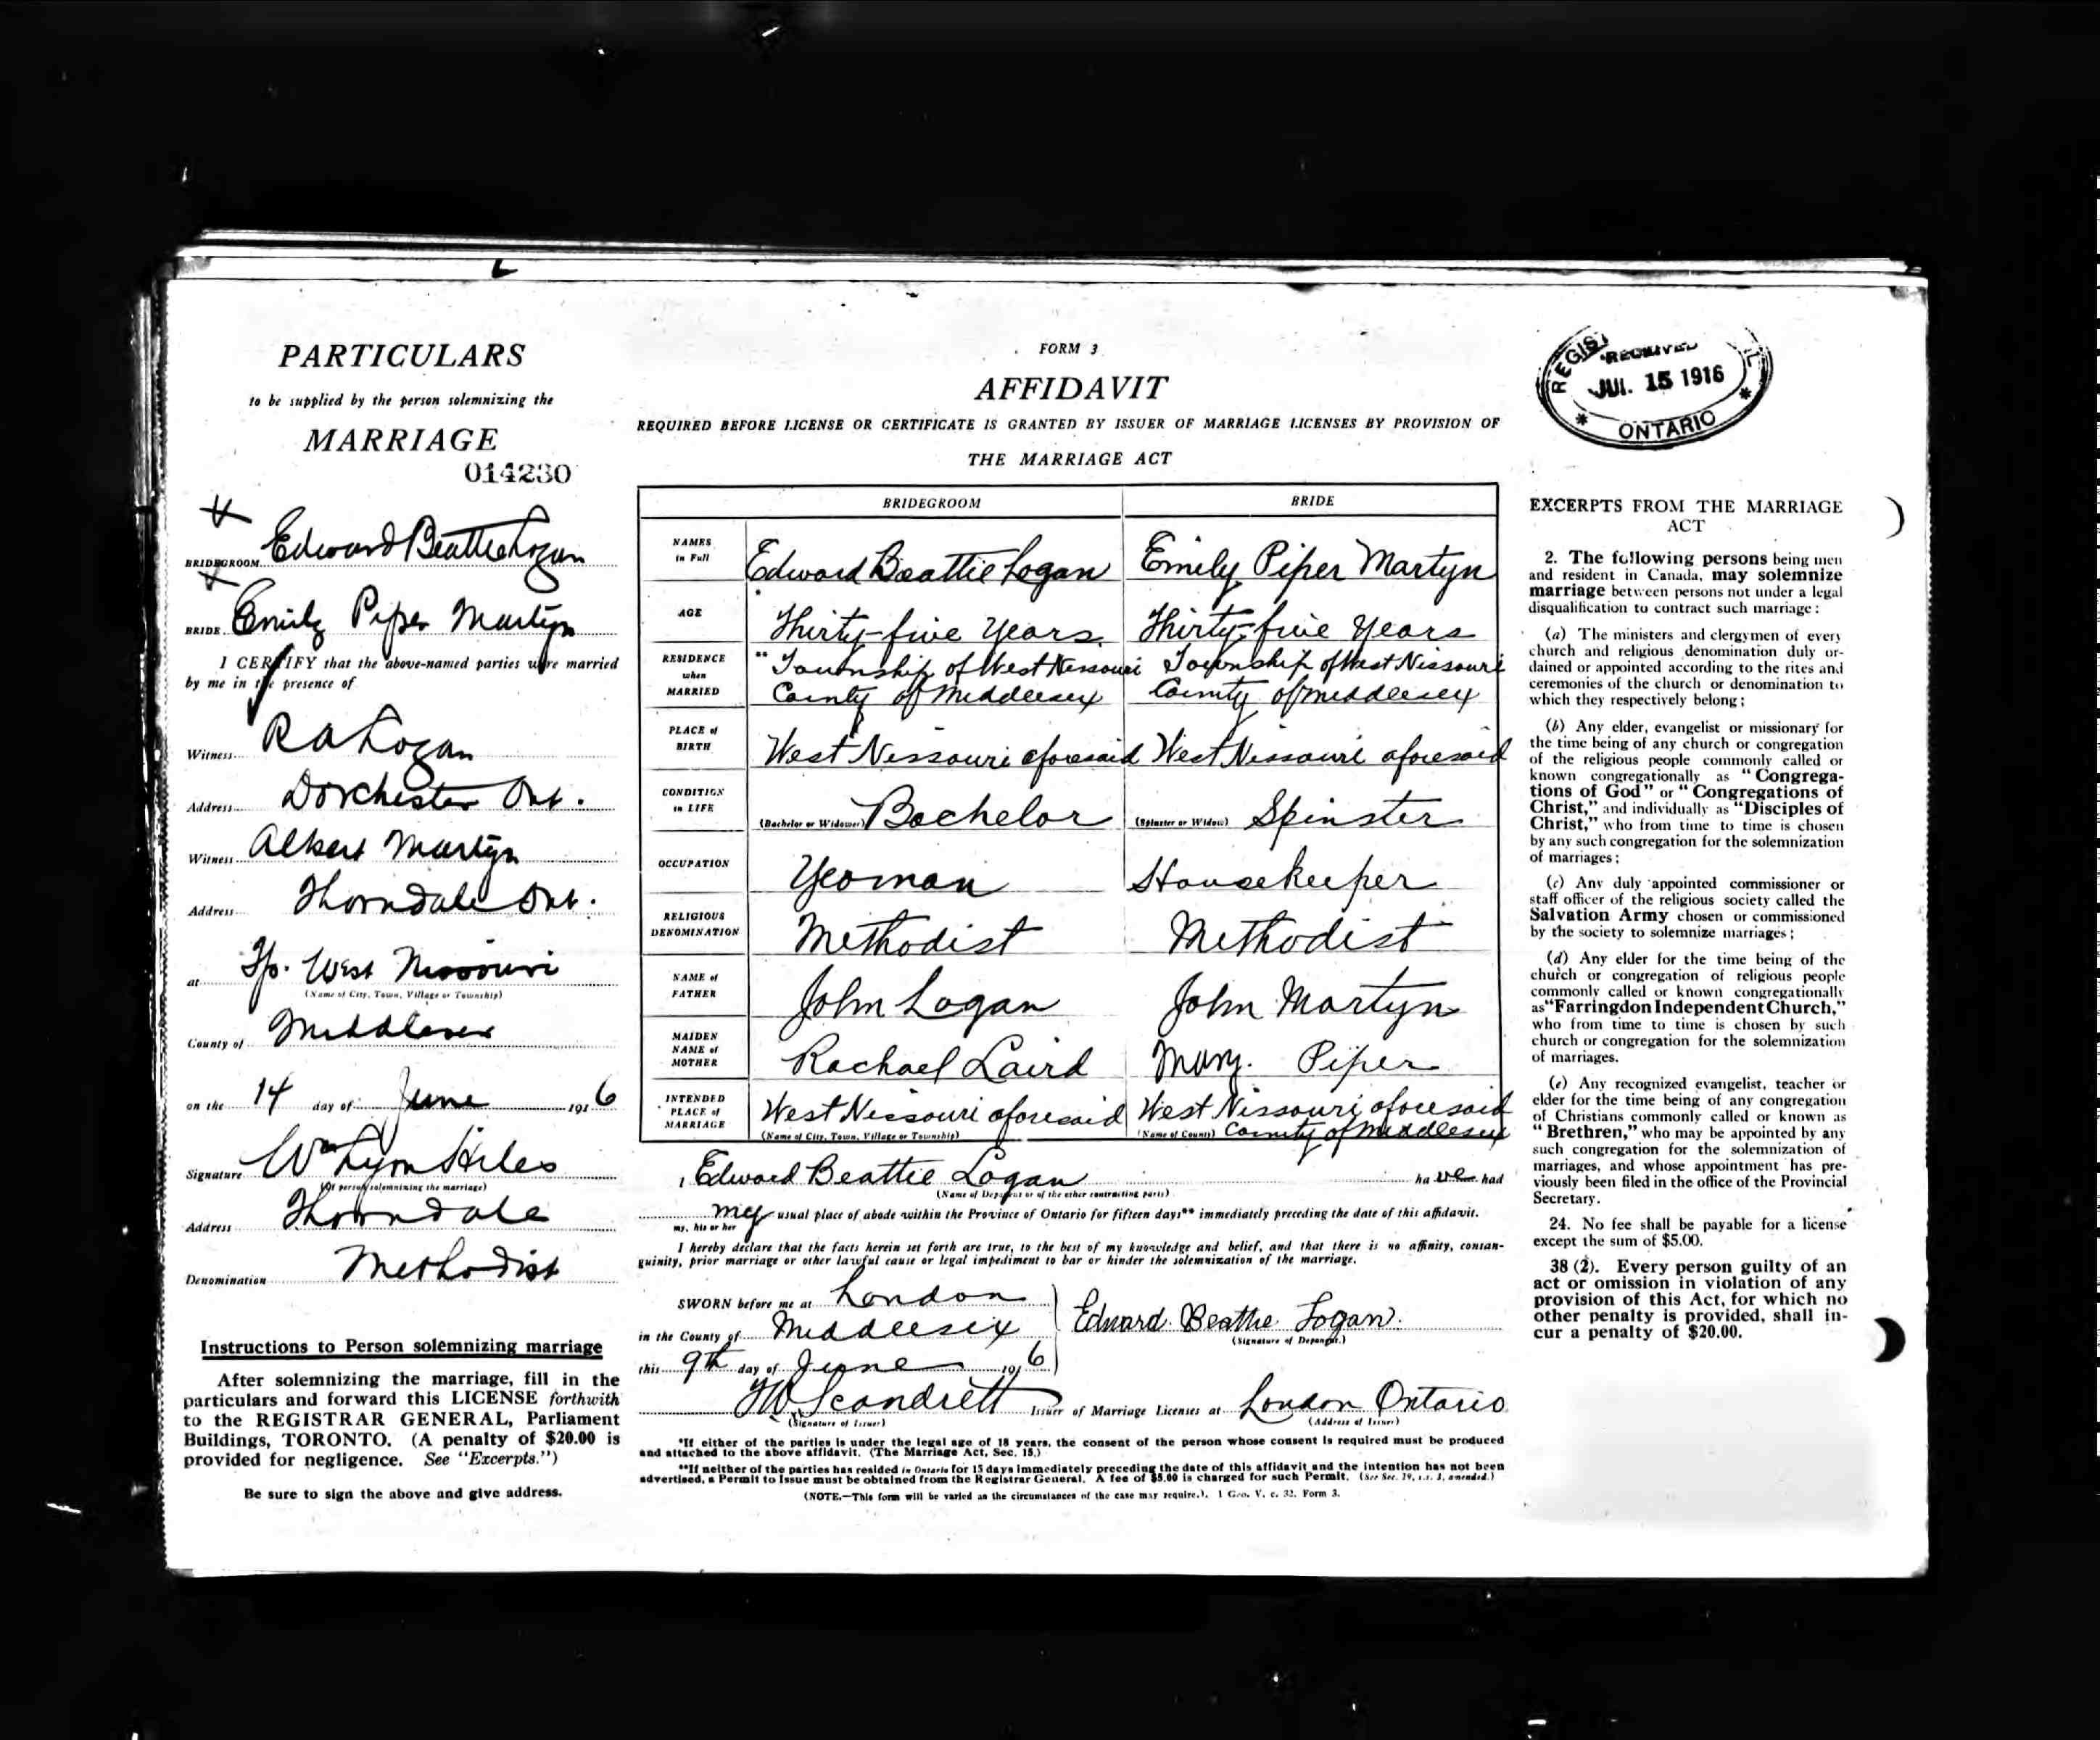 PARTICULARS
to be supplied by the person solemnizing the
MARRIAGE
014230
BRIDEGROOM Edward Beattie Logan
BRIDE Emily Piper Martyn
I CERTIFY that the above-named parties were married
by me in the presence of
Witness R A Logan
Address Dorchester Ont.
Witness Albert Martyn
Address Thorndale Ont.
at Tp. West Nissouri
(Name of City, Town, Village or Township)
County of Middlesex
on the 14 day of June 1916
Signature Wm Lyon Hiles
(Of person solemnizing the marriage)
Address Thorndale
Denomination Methodist
Instructions to Person solemnizing marriage
After solemnizing the marriage, fill in the
particulars and forward this LICENSE forthwith
to the REGISTRAR GENERAL, Parliament
Buildings, TORONTO. (A penalty of $20.00 is
provided for negligence. See "Excerpts.")
Be sure to sign the above and give address.
FORM 3
AFFIDAVIT
REQUIRED BEFORE LICENSE OR CERTIFICATE IS GRANTED BY ISSUER OF MARRIAGE LICENSES BY PROVISION OF
THE MARRIAGE ACT
BRIDEGROOM BRIDE
NAMES in Full Edward Beattie Logan Emily Piper Martyn
AGE Thirty-five Years Thirty-five Years
RESIDENCE when MARRIED Township of West Nissouri Township of West Nissouri
County of Middlesex County of Middlesex
PLACE of BIRTH West Nissouri aforesaid West Nissouri aforesaid
CONDITION in LIFE (Bachelor or Widower) Bachelor (Spinster or Widow) Spinster
OCCUPATION Yeoman Housekeeper
RELIGIOUS DENOMINATION Methodist Methodist
NAME of FATHER John Logan John Martyn
MAIDEN NAME of MOTHER Rachael Laird Mary Piper
INTENDED PLACE of MARRIAGE West Nissouri aforesaid West Nissouri aforesaid
(Name of City, Town, Village or Township) (Name of County) County of Middlesex
I, Edward Beattie Logan have had
(Name of Deponent or of the other contracting party)
my usual place of abode within the Province of Ontario for fifteen days** immediately preceding the date of this affidavit.
my, his or her
I hereby declare that the facts herein set forth are true, to the best of my knowledge and belief, and that there is no affinity, consan-
guinity, prior marriage or other lawful cause or legal impediment to bar or hinder the solemnization of the marriage.
SWORN before me at London
in the County of Middlesex
this 9th day of June 1916
Edward Beattie Logan.
(Signature of Deponent.)
Scandrett Issuer of Marriage Licenses at London Ontario
(Signature of Issuer) (Address of Issuer)
*If either of the parties is under the legal age of 18 years, the consent of the person whose consent is required must be produced
and attached to the above affidavit. (The Marriage Act, Sec. 15.)
**If neither of the parties has resided in Ontario for 15 days immediately preceding the date of this affidavit and the intention has not been
advertised, a Permit to Issue must be obtained from the Registrar General. A fee of $5.00 is charged for such Permit. (See Sec. 19, s.s. 3, amended.)
(NOTE.—This form will be varied as the circumstances of the case may require.). 1 Geo. V. c. 32. Form 3.
RECEIVED
JUL. 15 1916
ONTARIO
EXCERPTS FROM THE MARRIAGE
ACT
2. The following persons being men
and resident in Canada, may solemnize
marriage between persons not under a legal
disqualification to contract such marriage:
(a) The ministers and clergymen of every
church and religious denomination duly or-
dained or appointed according to the rites and
ceremonies of the church or denomination to
which they respectively belong;
(b) Any elder, evangelist or missionary for
the time being of any church or congregation
of the religious people commonly called or
known congregationally as "Congrega-
tions of God" or "Congregations of
Christ," and individually as "Disciples of
Christ," who from time to time is chosen
by any such congregation for the solemnization
of marriages;
(c) Any duly appointed commissioner or
staff officer of the religious society called the
Salvation Army chosen or commissioned
by the society to solemnize marriages;
(d) Any elder for the time being of the
church or congregation of religious people
commonly called or known congregationally
as "Farringdon Independent Church,"
who from time to time is chosen by such
church or congregation for the solemnization
of marriages.
(e) Any recognized evangelist, teacher or
elder for the time being of any congregation
of Christians commonly called or known as
"Brethren," who may be appointed by any
such congregation for the solemnization of
marriages, and whose appointment has pre-
viously been filed in the office of the Provincial
Secretary.
24. No fee shall be payable for a license
except the sum of $5.00.
38 (2). Every person guilty of an
act or omission in violation of any
provision of this Act, for which no
other penalty is provided, shall in-
cur a penalty of $20.00.